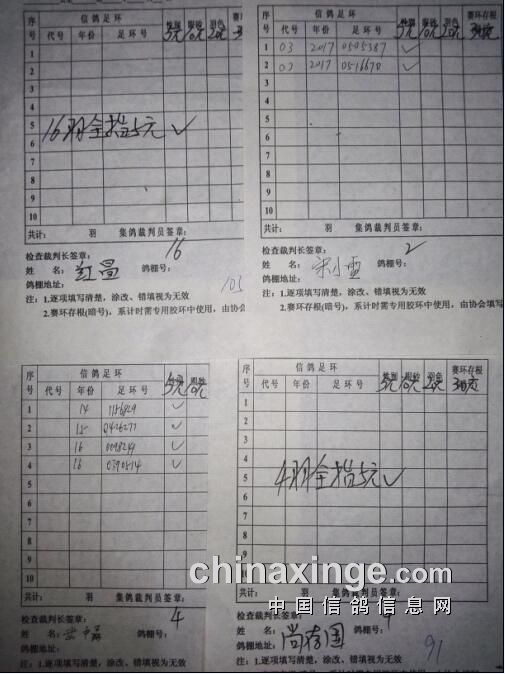 序号 信鸽足环 类别 眼砂 羽色 赛环存根
代号 年份 足环号 5元 10元 20元
1
2
3
4
5 16羽全指5元 ✓
6
7
8
9
10
共计: 羽 集鸽裁判员签章:
检查裁判长签章: 16
姓 名: 红昌 鸽棚号:
鸽棚地址: 105
注:1.逐项填写清楚,涂改、错填视为无效
2.赛环存根(暗号),系计时需专用胶环中使用,由协会
序号 信鸽足环 类别 眼砂 羽色 赛环存根
代号 年份 足环号 5元 10元 20元
1 03 2017 0505387 ✓
2 03 2017 0516678 ✓
3
4
5
6
7
8
9
10
共计: 羽 集鸽裁判员签章:
检查裁判长签章: 2
姓 名: 宋小雪 鸽棚号:
鸽棚地址:
注:1.逐项填写清楚,涂改、错填视为无效
2.赛环存根(暗号),系计时需专用胶环中使用,由协会填写
序号 信鸽足环
代号 年份 足环号 5元 10元
1 14 1156829 ✓
2 15 0426277 ✓
3 16 ✓
4 16 0390514 ✓
5
6
7
8
9
10
共计: 羽 集鸽裁判员签章:
检查裁判长签章: 4
姓 名: 鸽棚号:
鸽棚地址:
注:1.逐项填写清楚,涂改、错填视为无效
序号 信鸽足环 类别 眼砂 羽色 赛环存根
代号 年份 足环号 5元 10元 20元
1
2
3
4
5 4羽全指5元 ✓
6
7
8
9
10
共计: 羽 集鸽裁判员签章:
检查裁判长签章: 4
姓 名: 尚存国 鸽棚号:
鸽棚地址: 91
注:1.逐项填写清楚,涂改、错填视为无效
chinaxinge.com
中国信鸽信息网